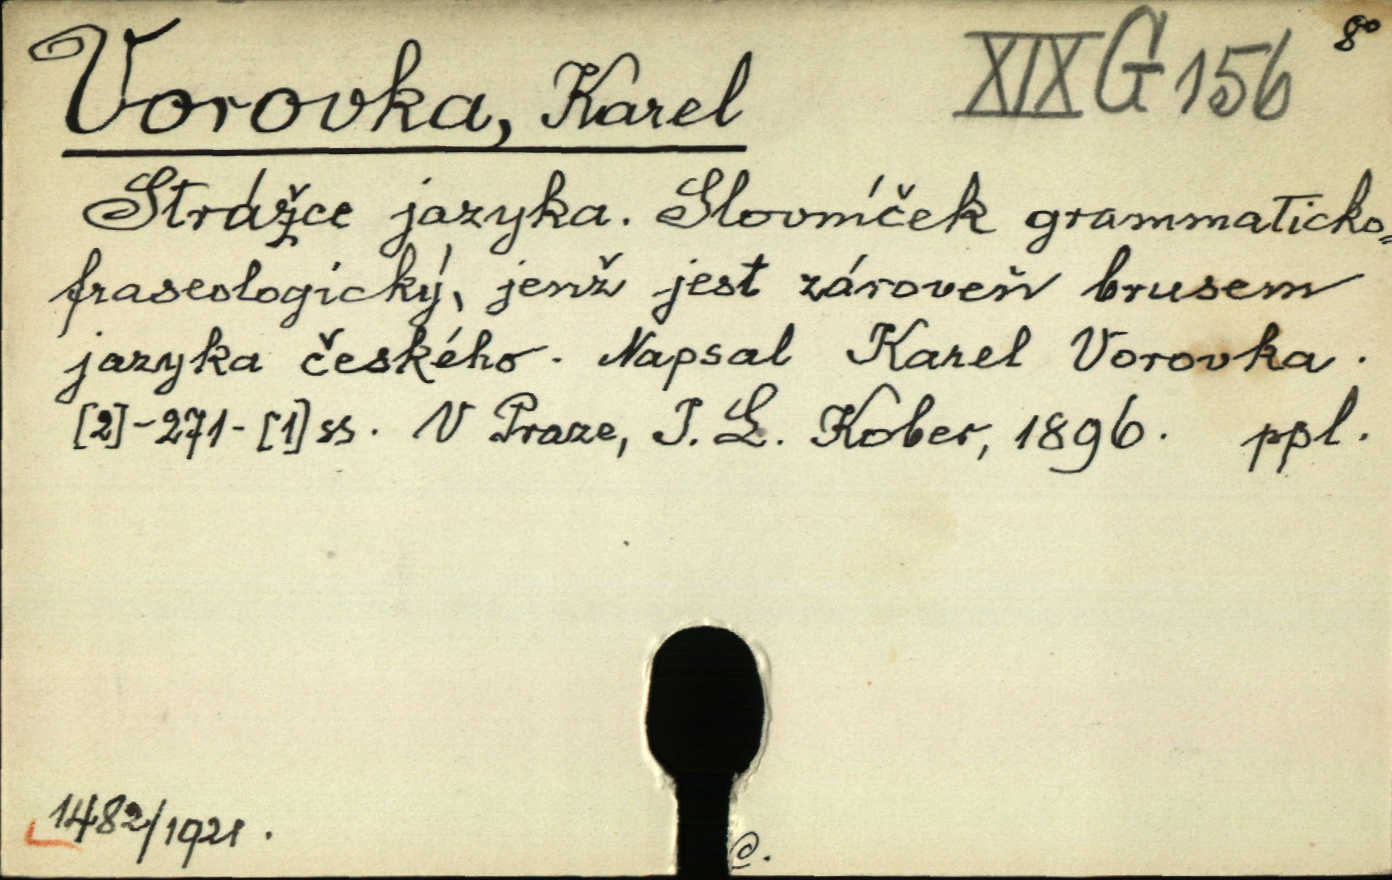 Vorovka, Karel XIX G 156 8°
Strážce jazyka. Slovníček grammaticko-
fraseologický, jenž jest zároveň brusem
jazyka českého. Napsal Karel Vorovka.
[2]-271-[1] ss. V Praze, I. L. Kober, 1896. ppl.
1482/1921.